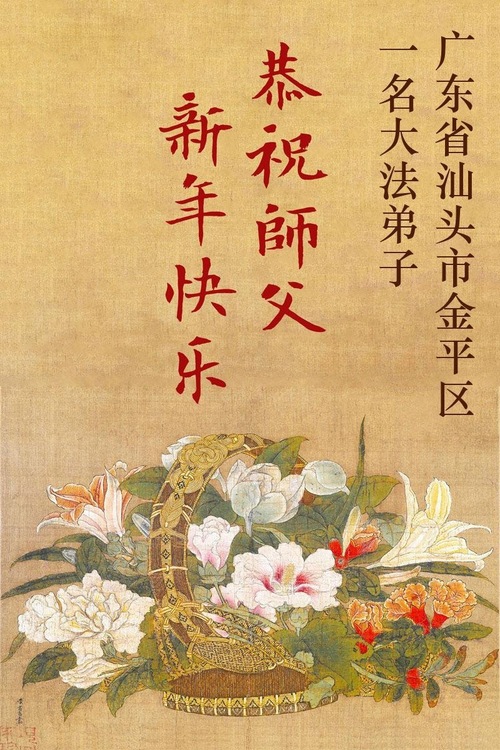 广东省汕头市金平区
一名大法弟子
恭祝師父
新年快乐